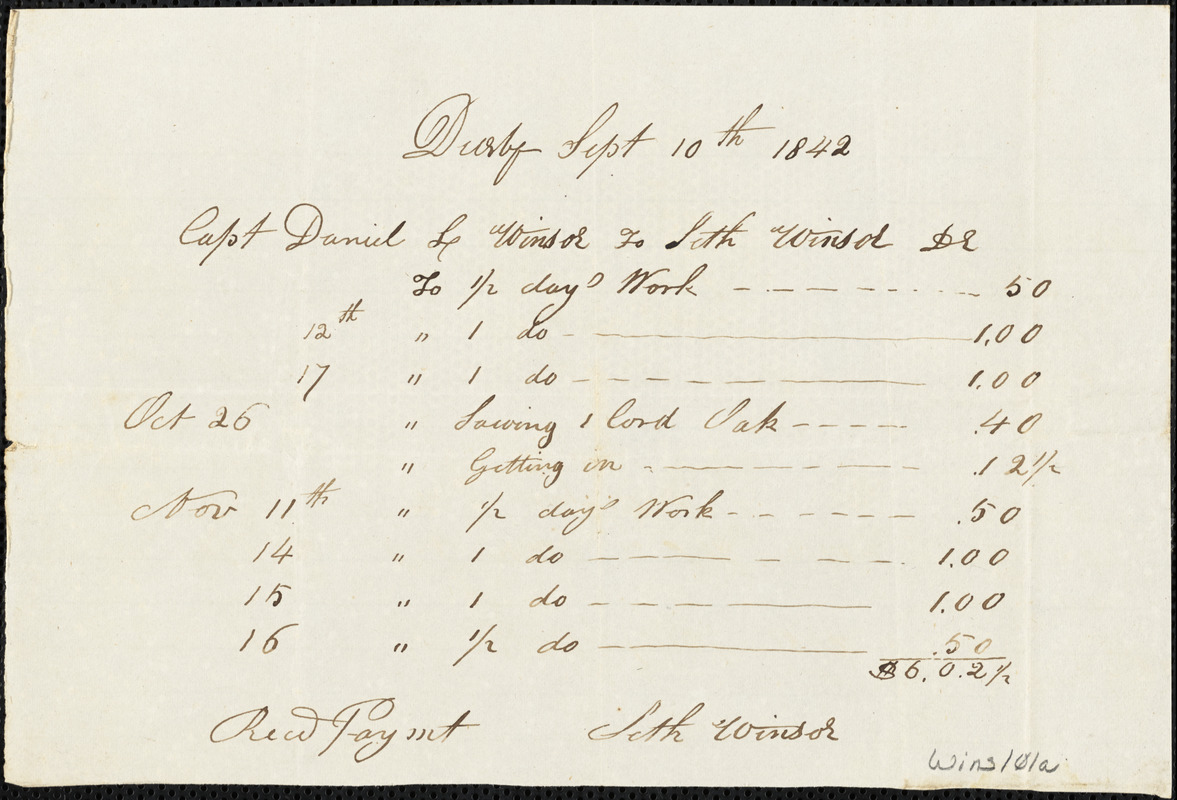 Duxby Sept 10th 1842
Capt Daniel L Winsor To Seth Winsor DR
To 1/2 days Work 50
12th " 1 do 1.00
17 " 1 do 1.00
Oct 26 " Sawing 1 Cord Oak .40
" Getting in .12 1/2
Nov 11th " 1/2 days Work .50
14 " 1 do 1.00
15 " 1 do 1.00
16 " 1/2 do .50
$6.0.2 1/2
Recd Paymt Seth Winsor